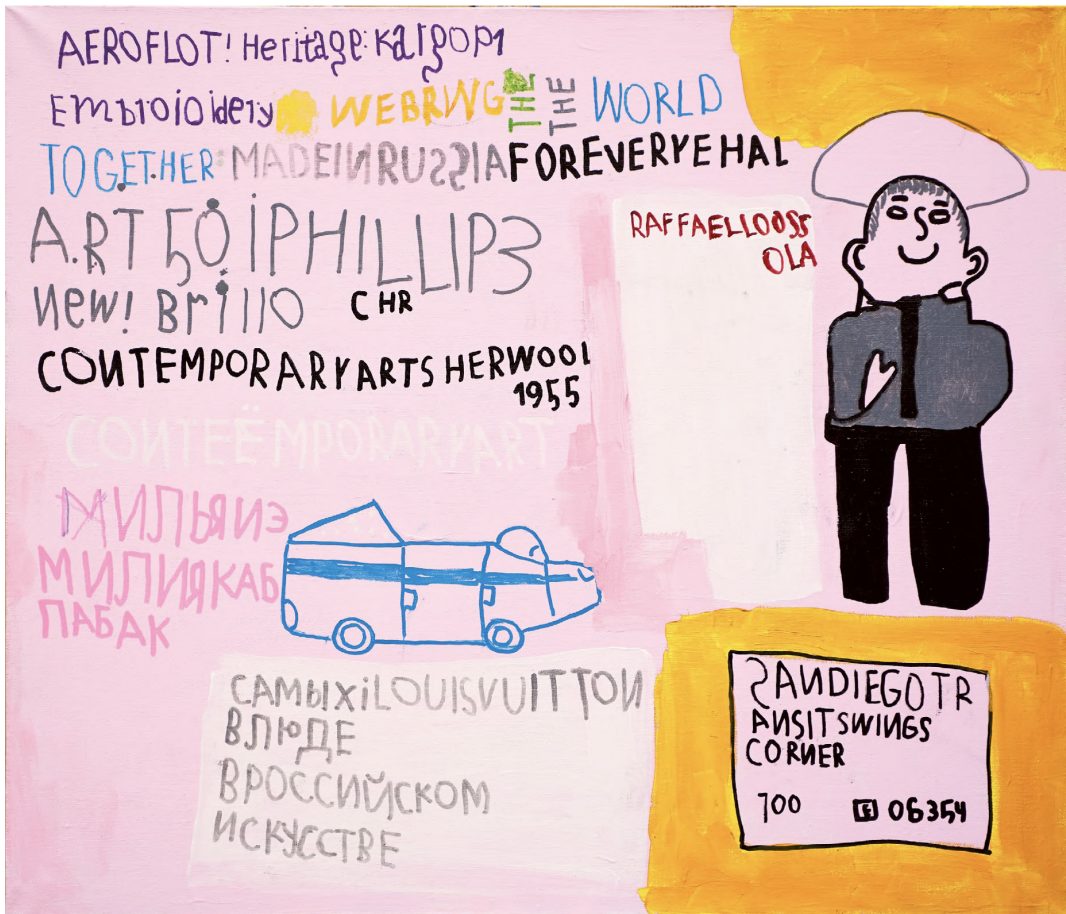 AEROFLOT! Heritage: Kargopi
Embroioidery WEBRING THE THE WORLD
TOGETHER: MADEINRUSSIAFOREVERYEHAL
A.RT 50 iPHILLIP3
New! Brillo CHR
CONTEMPORARYARTSHERWOOL
1955
CONTEËMPORARYART
МИЛЬЯИЭ
МИЛИЯКАБ
ПАБАК
RAFFAELLOOSS
OLA
САМЫХiLOUISVUITTON
ВЛЮДЕ
ВРОССИЙСКОМ
ИСКУССТВЕ
SANDIEGOTR
ANSITSWINGS
CORNER
700 E 06354